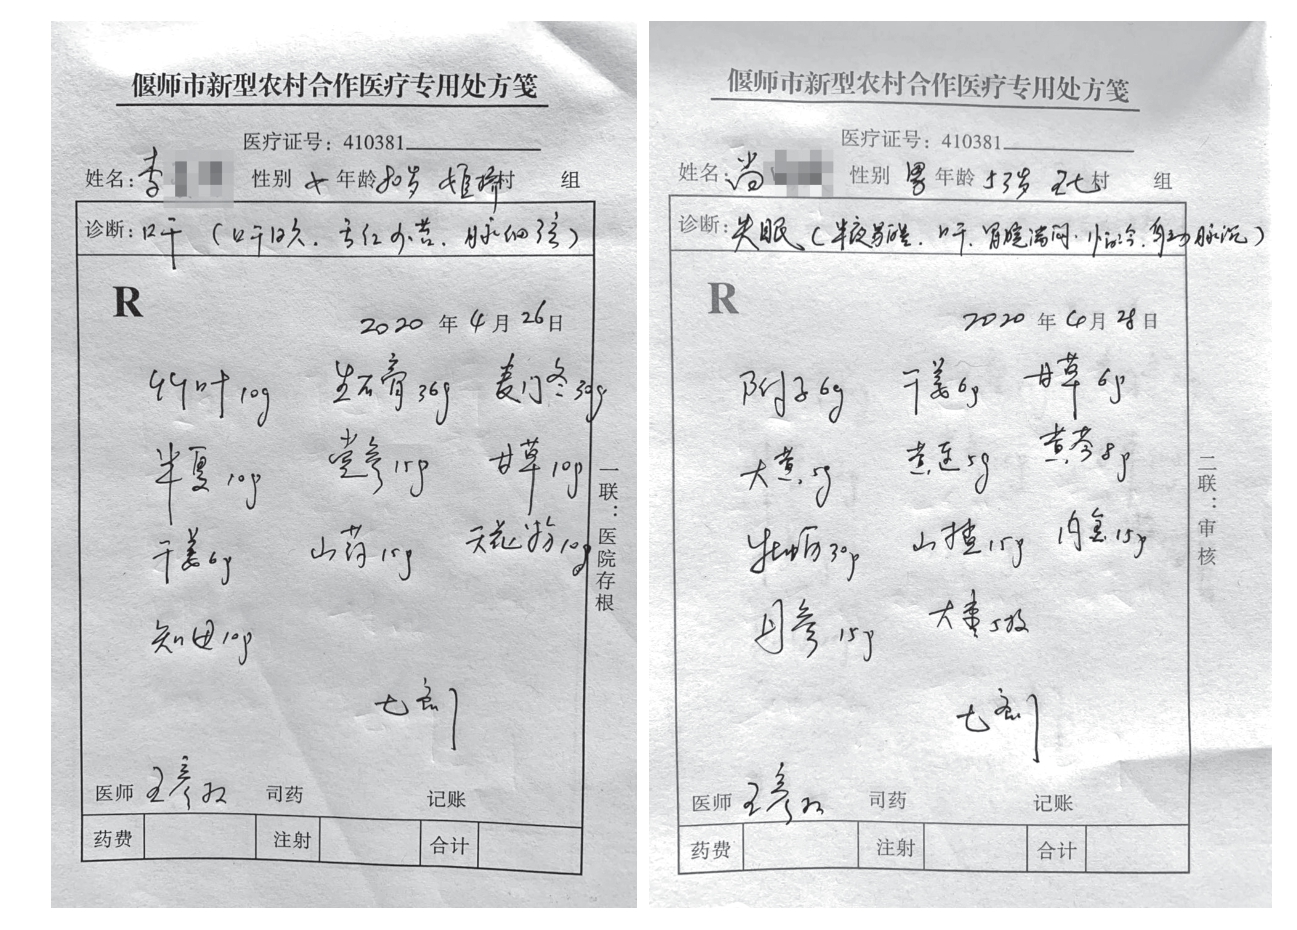 偃师市新型农村合作医疗专用处方笺
医疗证号：410381
姓名：李 性别 女 年龄 80岁 村 组
诊断：口干（口干日久．舌红少苔．脉细弦）
R
2020 年 4 月 26 日
竹叶10g 生石膏36g 麦门冬30g
半夏10g 党参15g 甘草10g
干姜6g 山药15g 天花粉10g
知母10g
七剂
一联：医院存根
医师 王彦 司药 记账
药费 注射 合计
偃师市新型农村合作医疗专用处方笺
医疗证号：410381
姓名：尚 性别 男 年龄 53岁 王七村 组
诊断：失眠（半夜易醒．口干．胃脘满闷．脉沉）
R
2020 年 4 月 28 日
附子6g 干姜6g 甘草6g
大黄5g 黄连5g 黄芩8g
牡蛎30g 山楂15g 内金15g
丹参15g 大枣5枚
七剂
二联：审核
医师 王彦 司药 记账
药费 注射 合计